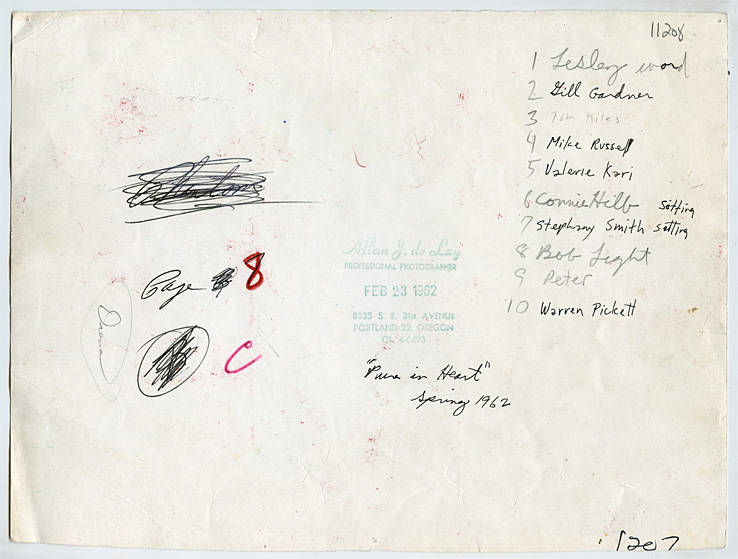 11208
1 Lesley word
2 Gill Gardner
3 Tom Miles
4 Mike Russell
5 Valerie Kari
6 Connie Hilb Sitting
7 Stephany Smith sitting
8 Bob Light
9 Peter
10 Warren Pickett
Page 8
C
Drama
Allan J. de Lay
PROFESSIONAL PHOTOGRAPHER
FEB 23 1962
8835 S. E. 31st AVENUE
PORTLAND 22, OREGON
OL 4-6493
"Pure in Heart"
Spring 1962
1207